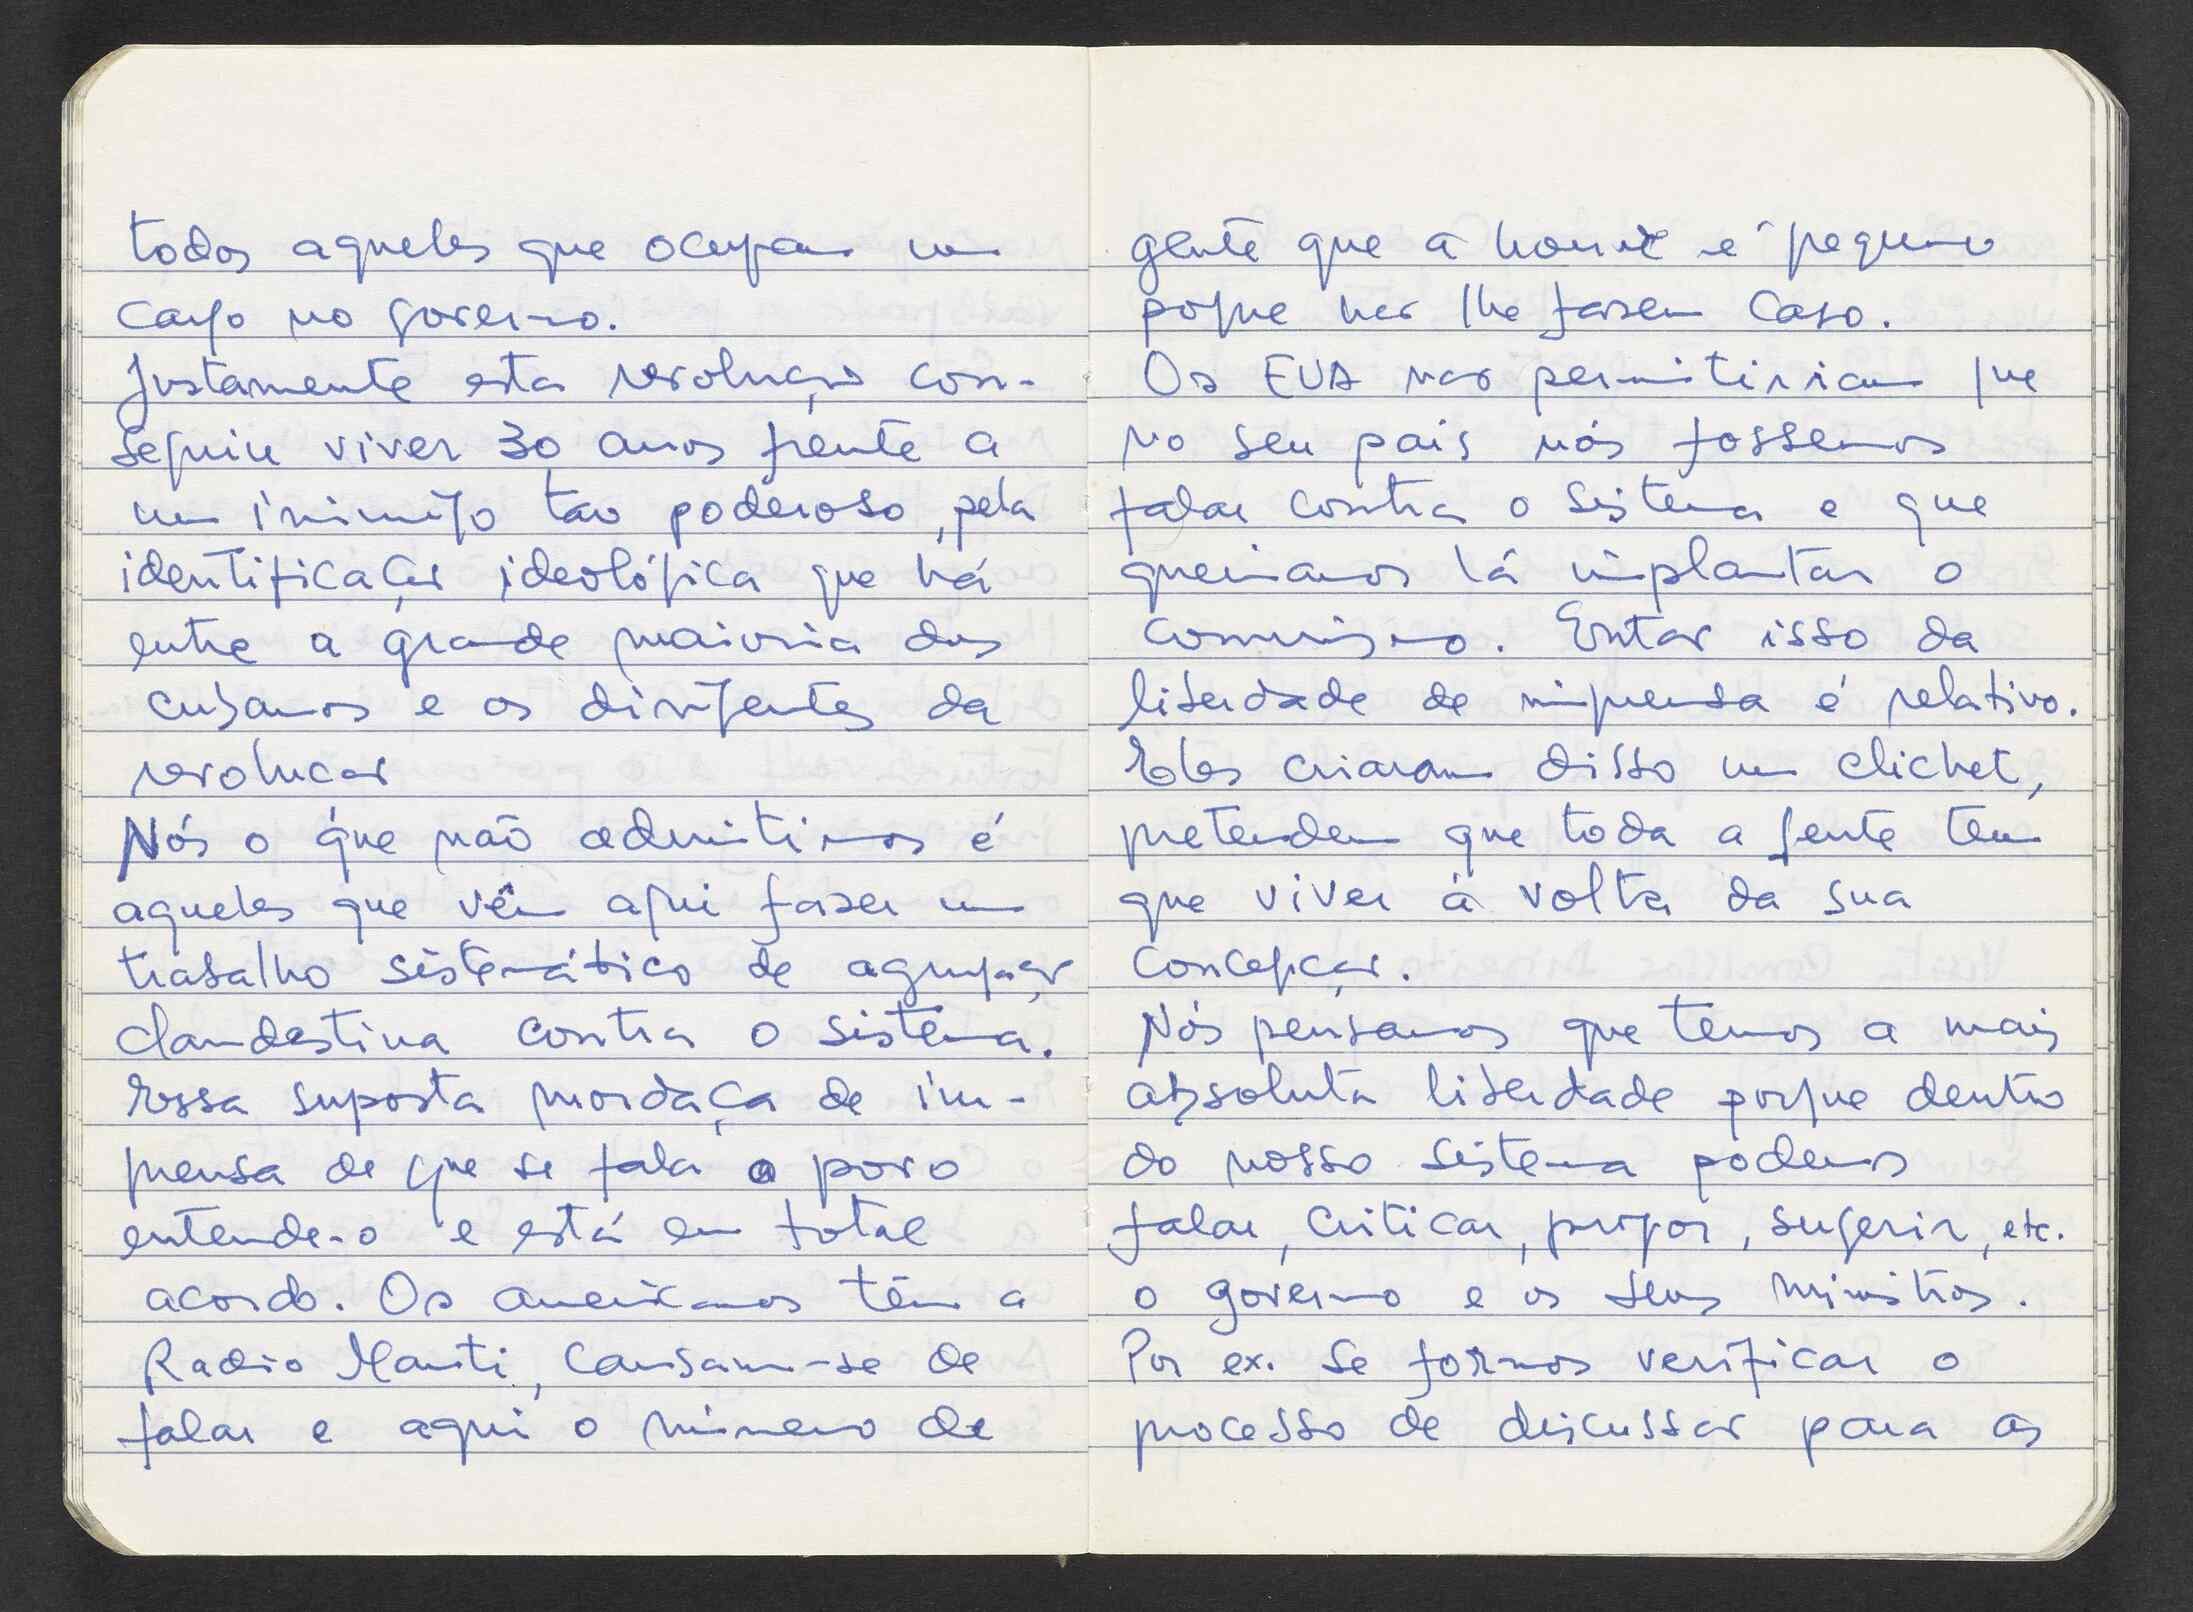 todos aqueles que ocupam um
cargo no governo.
Justamente esta revolução con-
seguiu viver 30 anos frente a
um inimigo tao poderoso, pela
identificação ideológica que há
entre a grande maioria dos
cubanos e os dirigentes da
revolucao
Nós o que não admitimos é
aqueles que vêm aqui fazer um
trabalho sistemático de agrupaçao
clandestina contra o sistema.
Essa suposta mordaça de im-
prensa de que se fala o povo
entende-o e está em total
acordo. Os americanos têm a
Radio Marti, cansam-se de
falar e aqui o número de
gente que a houve é pequeno
porque nao lhe fazem caso.
Os EUA nao permitiriam que
no seu pais nós fossemos
falar contra o sistema e que
queriamos lá implantar o
comunismo. Entao isso da
liberdade de imprensa é relativo.
Eles criaram disso um clichet,
pretendem que toda a gente tem
que viver à volta da sua
concepçao.
Nós pensamos que temos a mais
absoluta liberdade porque dentro
do nosso sistema podemos
falar, criticar, propor, sugerir, etc.
o governo e os seus ministros.
Por ex. se formos verificar o
processo de discussao para as